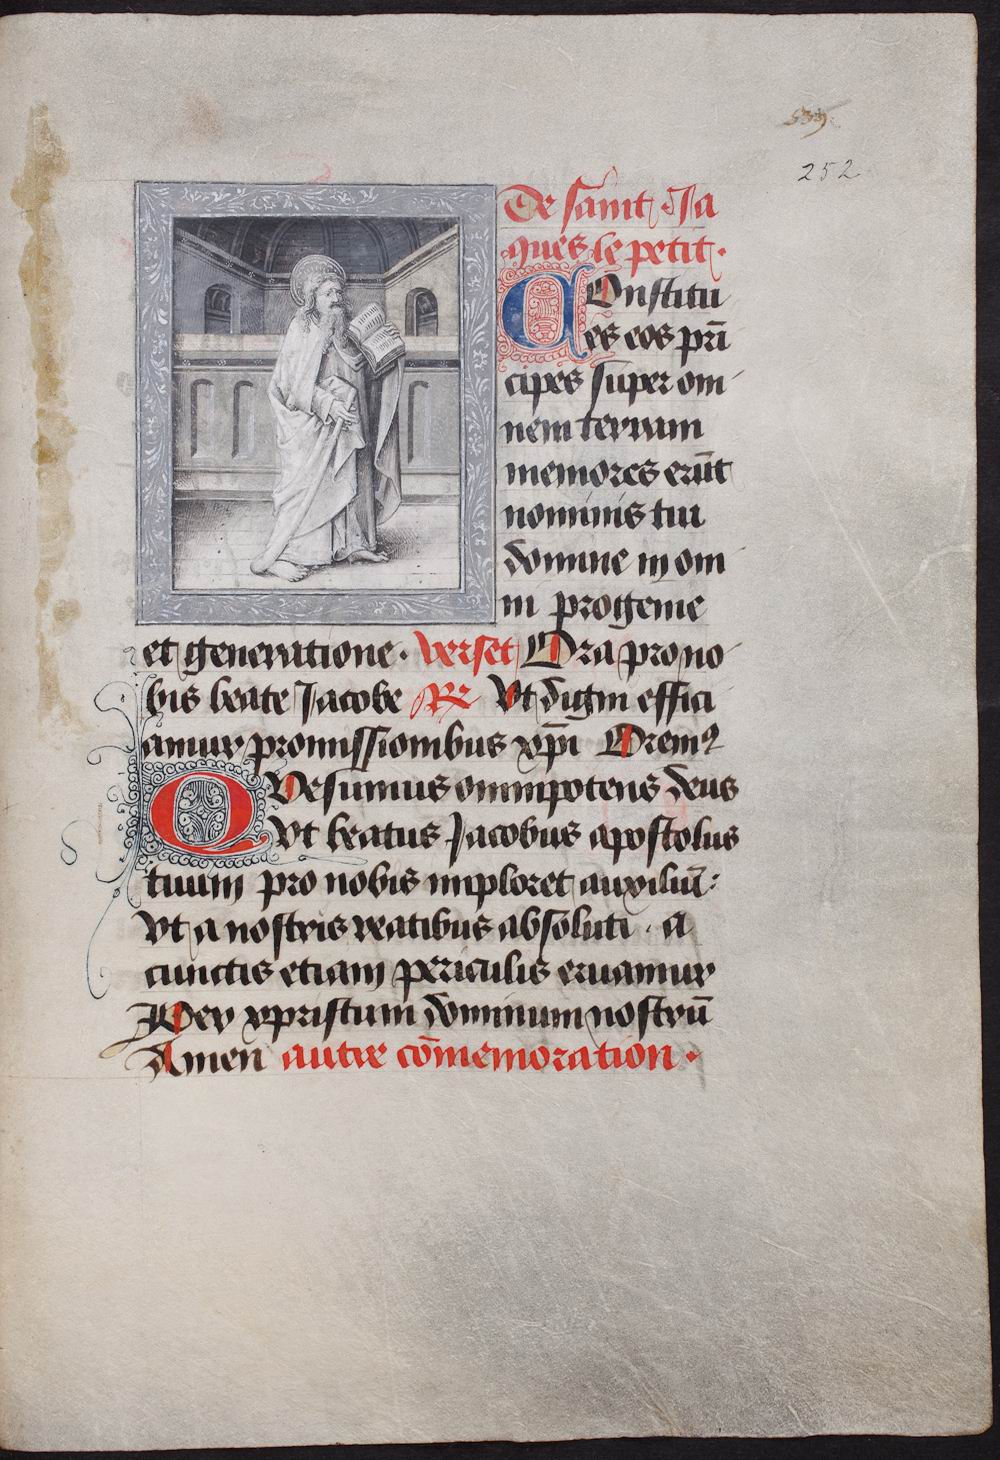 252
De saint Ja
ques le petit.
COnstitu
es eos prī
cipes super om
nem terram
memores erūt
nominis tui
domine in om
ni progenie
et generatione. verset Ora pro no
bis beate Jacobe R Vt digni effici
amur promissionibus xp̄i Oremꝰ
QVesumus omnipotens deus
vt beatus Jacobus apostolus
tuum pro nobis imploret auxiliū:
Vt a nostris reatibus absoluti . a
cunctis etiam periculis eruamur
Per xpristum dominum nostrū
Amen autre cōmemoration.